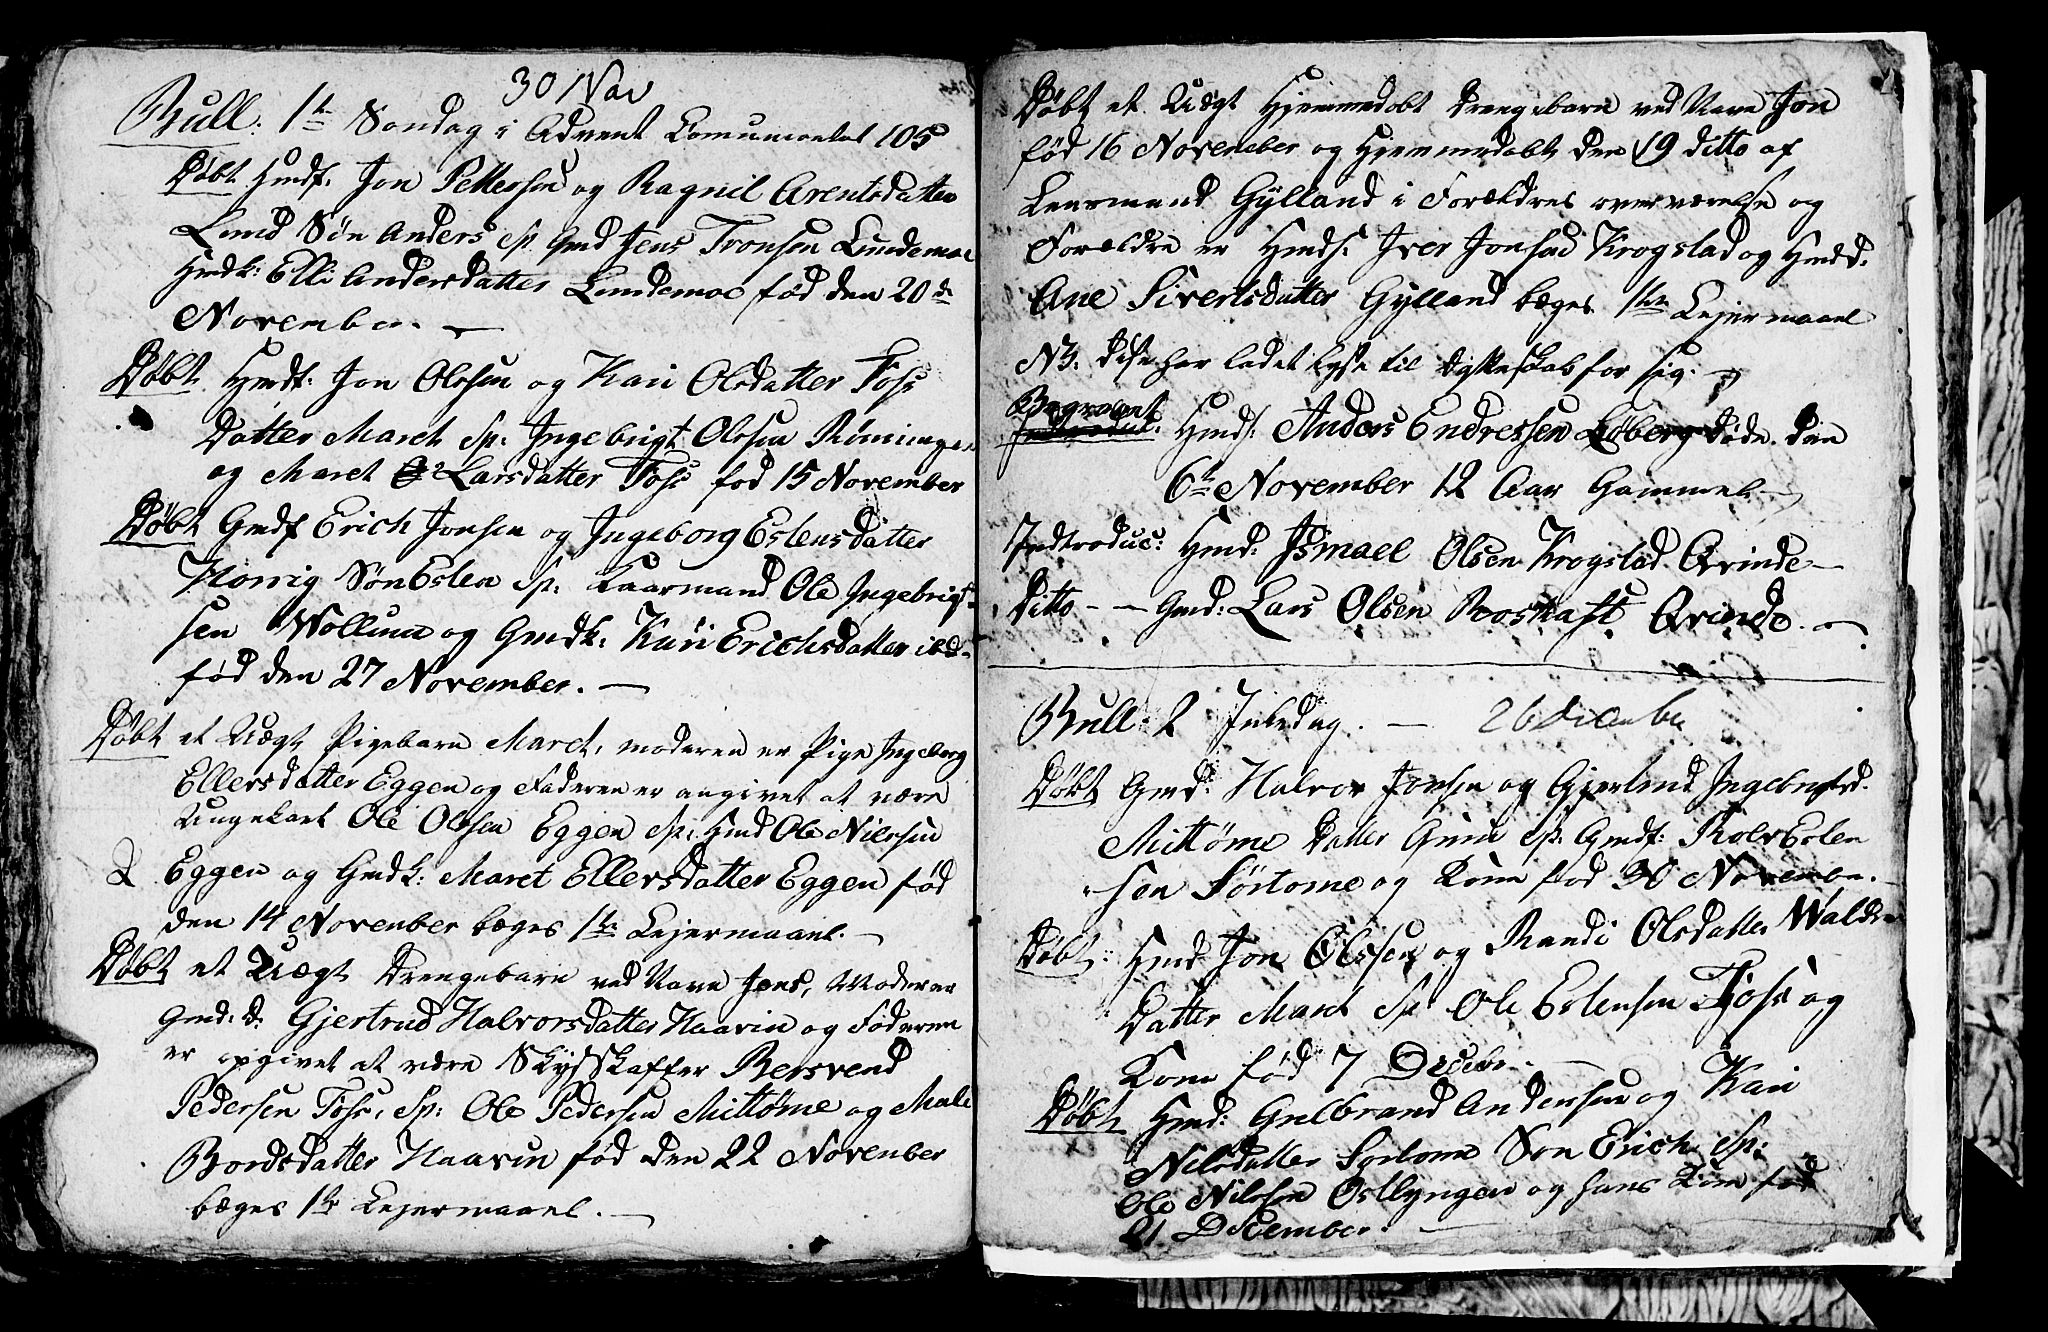 30 Nov
Bull: 1te Søndag i Advent Comunicantes 105
Døbt Hmdf: Jon Pettersen og Ragnil Arentsdatter
Lund Søn Anders Sp. Gmd Jens Tronsen Lundemoe
Hmdk: Elli Andersdatter Lundemoe fød den 20de
November. —
Døbt Hmdf: Jon Olssen og Kari Olsdatter Foss
Datter Maret Sp: Ingebrigt Olssen Rømmingen
og Maret Larsdatter Foss fød 15 November
Døbt Gmdf Erich Jonsen og Ingeborg Estensdatter
Horrig Søn Esten Sp: Laarmand Ole Ingebrigt-
sen Wollum og Gmdk: Kari Erichsdatter ibd-
fød den 27 November. —
Døbt et Uægt Pigebarn Maret, moderen er Pige Ingeborg
Ellersdatter Eggen og Faderen er angivet at være
Ungekarl Ole Olssen Eggen Sp: Hmd Ole Nilssen
Eggen og Gmdk: Maret Ellersdatter Eggen fød
den 14 November bæges 1te Lejermaael. —
Døbt et Uægt Drengebarn ved Navn Jens, Moderen
Gmd: D: Gjertrud Halvorsdatter Haavin og Faderen
er opgivet at være Skysskaffer Bersvend
Pedersen Foss, Sp: Ole Pedersen Mittømme og Mali
Bordsdatter Haavin fød den 22 November
bæges 1te Lejermaael. —
Døbt et Uægt Hjemmedøbt Drengebarn ved Navn Jon
fød 16 November og Hjemmedøbt den 19 ditto af
Leensmand Gylland i Forældres overværelse og
Forældre er Hmds: Iver Jonsen Krogstad og Hmdd:
Ane Sivertsdatter Gylland bæges 1te Lejermaael
NB: disse har ladet lyse til Ægteskab for sig. —
Begravet Hmds: Anders Endressen Løberg døde den
6te November 12 Aar Gammel —
Indtroduc: Hmd: Ismael Olsen Krogstad Qvinde —
Ditto — — Gmd: Lars Olsen Rooskaft Qvinde. —
Bull: 2 Juledag. — 26 December
Døbt Gmd: Halvor Jonsen og Gjertrud Ingebrigtsd.
Mittømme Datter Guru Sp: Gmdf: Rolv Esten
sen Sørtømme og Kone fød 30 November.
Døbt: Hmd Jon Olssen og Randi Olsdatter Wald
Datter Maret Sp: Ole Estensen Foss og
Kone fød 7 Decebr. —
Døbt Hmd: Gulbrand Andersen og Kari
Nilsdatter Sørtømme Søn Erich Sp:
Ole Nilssen Østlyngen og hans Kone fød
21 December. —